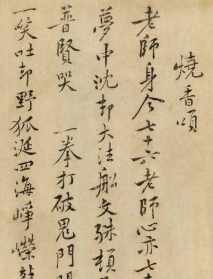 燒香頌
老師身今七十六老師心亦七
夢中沈却大法船文殊頓
普賢哭 一拳打破鬼門関
一笑吐却野狐涎四海崢嶸